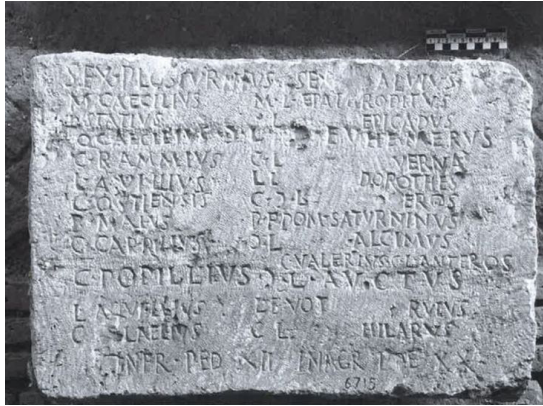 SEX · PLOSVRNIVS · SEX · SALVIVS
M · CAECILIVS M · L · EPAPHRODITVS
STATIVS Ɔ · L EPICADVS
Q · CAECILIVS · Ɔ · L · EVHEMERVS
C · RAMMIVS C · L VERNA
L · AVILLIVS L L DOROTHES
C · OSTIENSIS C · Ɔ · L · EROS
P · MARIS P · F POM · SATVRNINVS
C · CAPRILIVS Ɔ · L · ALCIMVS
C VALERIVS C L ANTEROS
C · POPILLIVS Ɔ · L · AVCTVS
L AQVILLIVS DEVOT RVFVS
C LAELIVS C · L · HILARVS
IN FR · PED · XII IN AGR P XX
6715